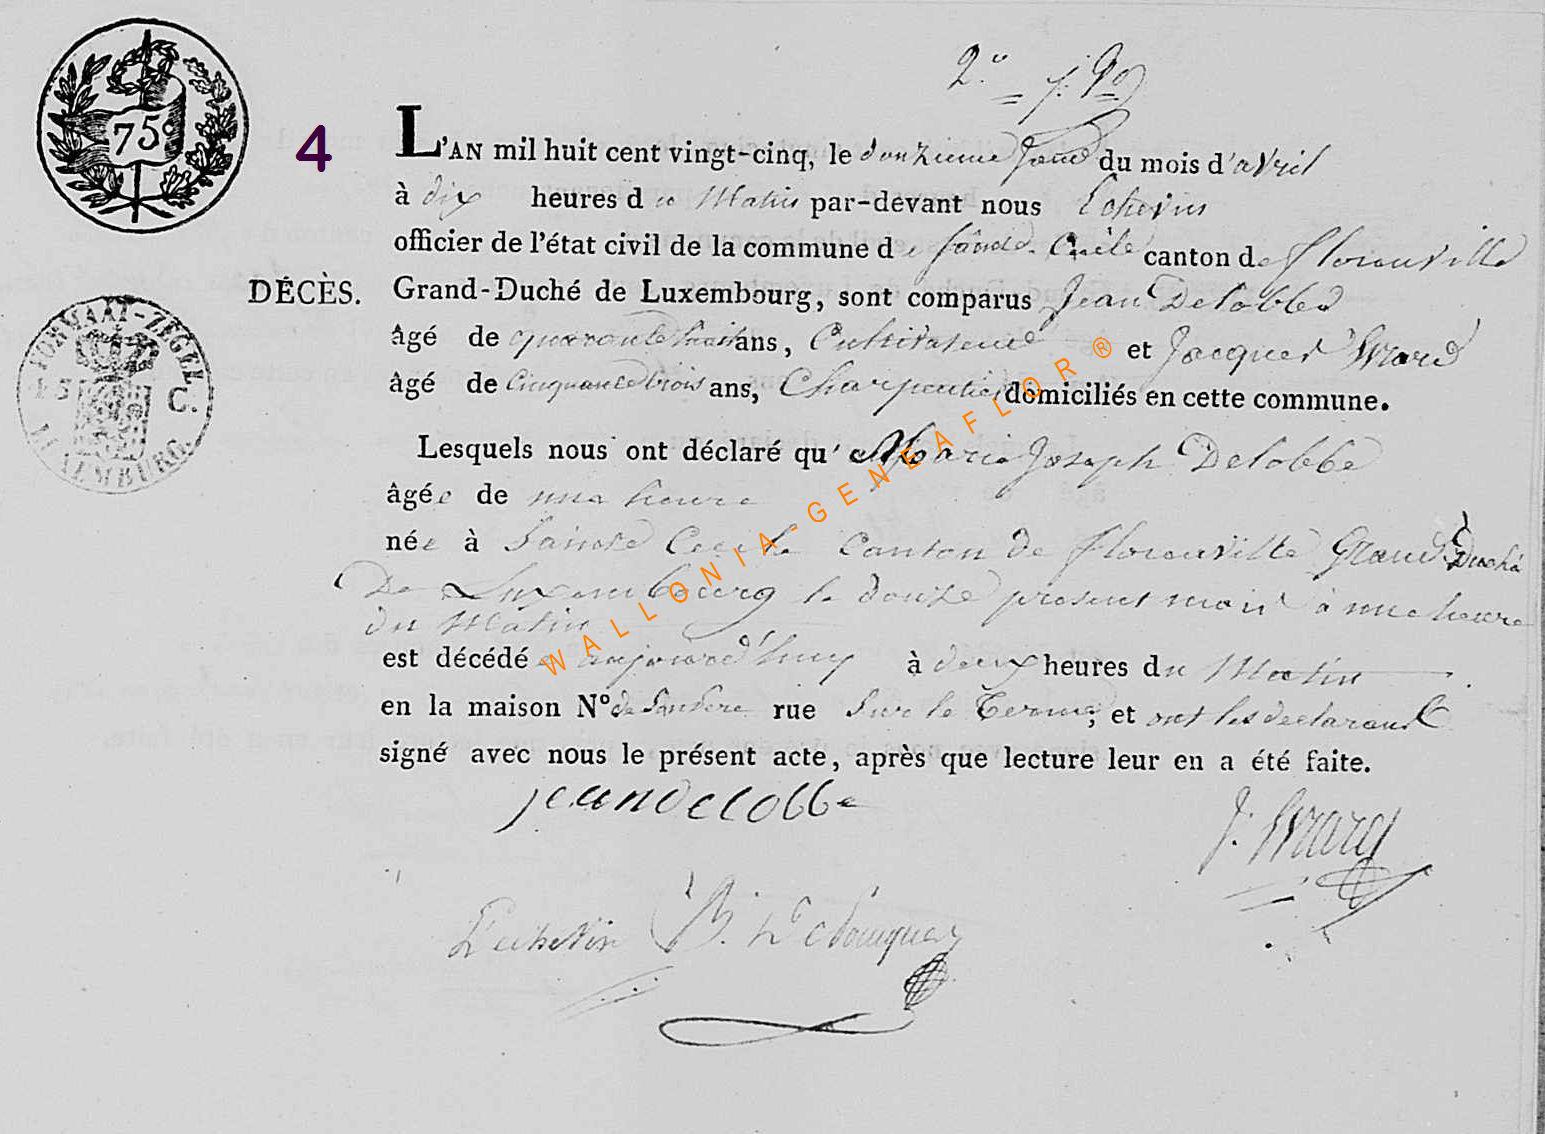 75c
4
L'AN mil huit cent vingt-cinq, le douzieme jour du mois d'avril
à dix heures du Matin par-devant nous Echevin
officier de l'état civil de la commune de Cécile canton de florenville
DÉCÈS.
Grand-Duché de Luxembourg, sont comparus Jean Delobbe
âgé de quarante huit ans, Cultivateur et Jacques Evrard
âgé de Cinquante trois ans, Charpentier domiciliés en cette commune.
FORMAAT-ZEGEL
15 C.
LUXEMBURG.
Lesquels nous ont déclaré qu' Marie Joseph Delobbe
âgée de une heure
née à Sainte Cecile Canton de florenville Grand Duché
De Luxembourg le douze present mois à une heure
du Matin
est décédée aujourd'huy à deux heures du Matin
en la maison N° rue Sur le Terme, et ont les declarant
signé avec nous le présent acte, après que lecture leur en a été faite.
jean delobbe
J. Evrard
L'echevin
WALLONIA-GENEAFLOR ®